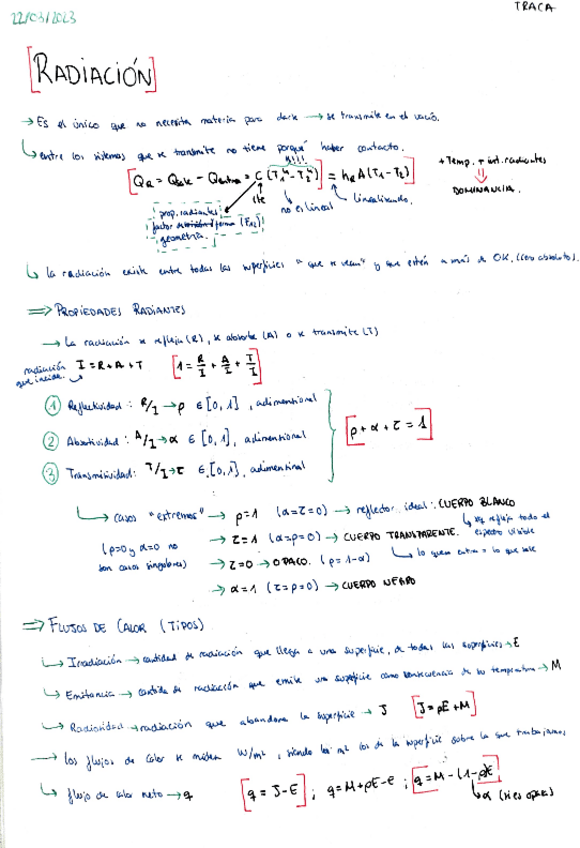 22/03/2023
TRACA
[RADIACIÓN]
→ Es el único que no necesita materia para darse → se transmite en el vacío.
↳ entre los sistemas que se transmite no tiene porqué haber contacto.
[Q_R = Q_sale - Q_entra = C (T₁⁴ - T₂⁴)] = h_R A (T₁ - T₂)]
¡¡¡¡
+ Temp. + int. radiantes
⇓
DOMINANCIA.
cte
no es lineal
Linealizando.
prop. radiantes
factor de forma (F₁₂)
geometría.
↳ la radiación existe entre todas las superficies "que se vean" y que estén a más de 0K. (cero absoluto).
⇒ PROPIEDADES RADIANTES
→ La radiación se refleja (R), se absorbe (A) o se transmite (T)
radiación que incide.
I = R + A + T [1 = R/I + A/I + T/I]
① Reflectividad: R/I → ρ ∈ [0, 1], adimensional
② Absortividad: A/I → α ∈ [0, 1], adimensional
③ Transmitividad: T/I → τ ∈ [0, 1], adimensional
[ρ + α + τ = 1]
↳ casos "extremos" → ρ=1 (α=τ=0) → reflector ideal: CUERPO BLANCO
↳ se refleja todo el espectro visible
(ρ=0 y α=0 no son casos singulares)
→ τ=1 (α=ρ=0) → CUERPO TRANSPARENTE.
↳ lo que entra = lo que sale
→ τ=0 → OPACO. (ρ = 1-α)
→ α=1 (τ=ρ=0) → CUERPO NEGRO
⇒ FLUJOS DE CALOR (TIPOS)
↳ Irradiación → cantidad de radiación que llega a una superficie, de todas las superficies → E
↳ Emitancia → cantidad de radiación que emite una superficie como consecuencia de su temperatura → M
↳ Radiosidad → radiación que abandona la superficie → J [J = ρE + M]
→ los flujos de calor se miden W/m², siendo los m² los de la superficie sobre la que trabajamos,
↳ flujo de calor neto → q [q = J - E]; q = M + ρE - E; [q = M - (1-ρ)E]
↳ α (si es opaco)